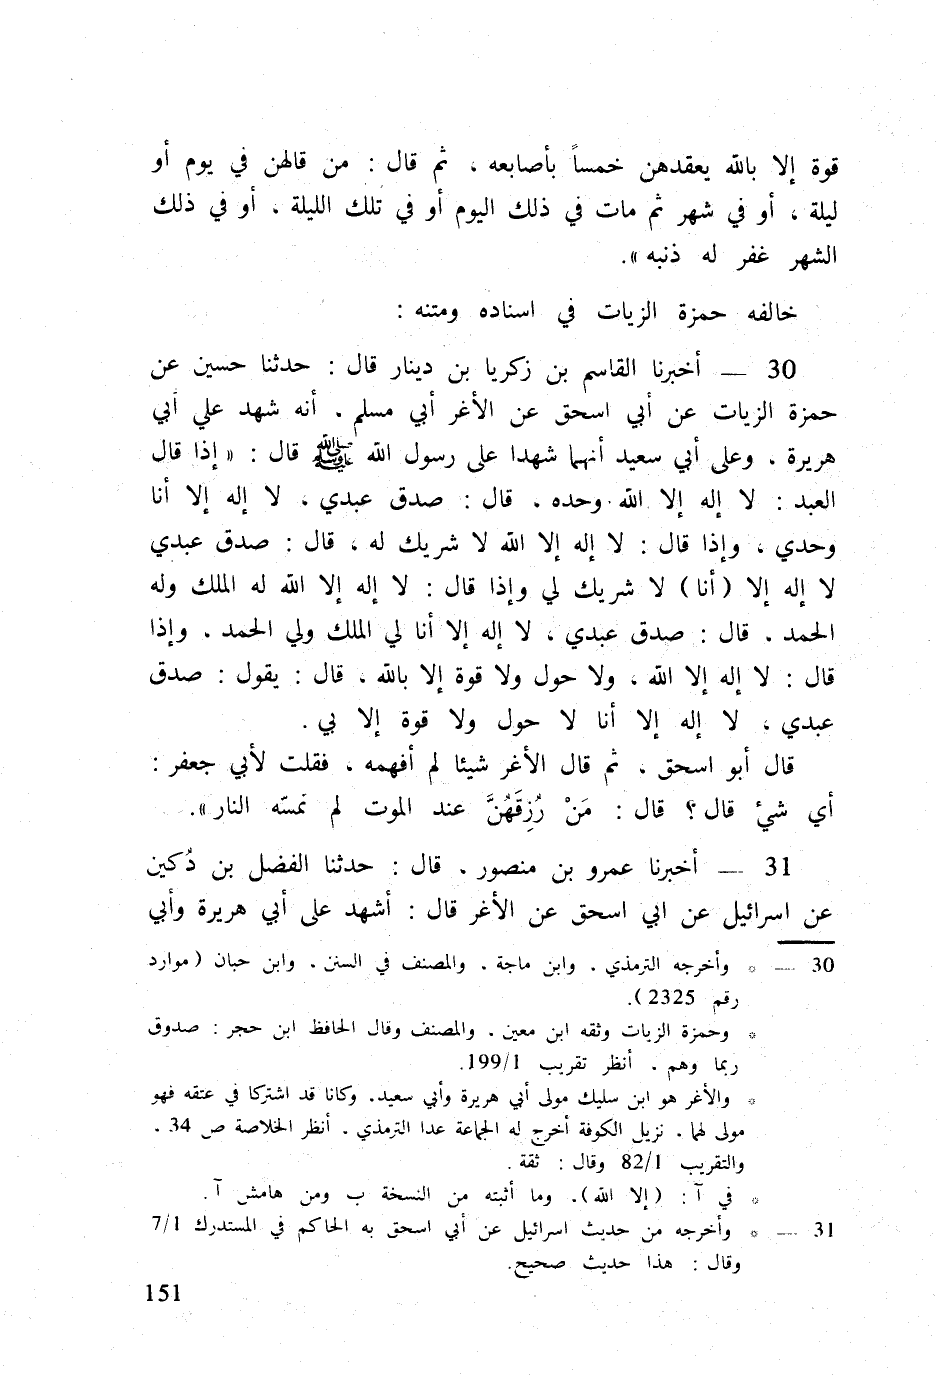 قوة إلا بالله يعقدهن خمساً بأصابعه ، ثم قال : من قالهن في يوم أو
ليلة ، أو في شهر ثم مات في ذلك اليوم أو في تلك الليلة ، أو في ذلك
الشهر غفر له ذنبه » .
خالفه حمزة الزيات في اسناده ومتنه :
30 — أخبرنا القاسم بن زكريا بن دينار قال : حدثنا حسين عن
حمزة الزيات عن أبي اسحق عن الأغر أبي مسلم ، أنه شهد علي أبي
هريرة ، وعلى أبي سعيد أنهما شهدا على رسول الله ﷺ قال : « إذا قال
العبد : لا إله إلا الله وحده ، قال : صدق عبدي ، لا إله إلا أنا
وحدي ، وإذا قال : لا إله إلا الله لا شريك له ، قال : صدق عبدي
لا إله إلا (أنا) لا شريك لي وإذا قال : لا إله إلا الله له الملك وله
الحمد ، قال : صدق عبدي ، لا إله إلا أنا لي الملك ولي الحمد ، وإذا
قال : لا إله إلا الله ، ولا حول ولا قوة إلا بالله ، قال : يقول : صدق
عبدي ، لا إله إلا أنا لا حول ولا قوة إلا بي .
قال أبو اسحق ، ثم قال الأغر شيئا لم أفهمه ، فقلت لأبي جعفر :
أي شئ قال ؟ قال : مَنْ رُزِقَهُنَّ عند الموت لم تمسّه النار » .
31 — أخبرنا عمرو بن منصور . قال : حدثنا الفضل بن دُكين
عن اسرائيل عن ابي اسحق عن الأغر قال : أشهد على أبي هريرة وأبي
30 — * وأخرجه الترمذي . وابن ماجة . والمصنف في السنن . وابن حبان ( موارد
رقم 2325 ).
* وحمزة الزيات وثقه ابن معين . والمصنف وقال الحافظ ابن حجر : صدوق
ربما وهم . أنظر تقريب 199/1.
* والأغر هو ابن سليك مولى أبي هريرة وأبي سعيد. وكانا قد اشتركا في عتقه فهو
مولى لهما . نزيل الكوفة أخرج له الجماعة عدا الترمذي . أنظر الخلاصة ص 34 .
والتقريب 82/1 وقال : ثقة .
* في آ : (إلا الله). وما أثبته من النسخة ب ومن هامش آ .
31 — * وأخرجه من حديث اسرائيل عن أبي اسحق به الحاكم في المستدرك 7/1
وقال : هذا حديث صحيح.
151